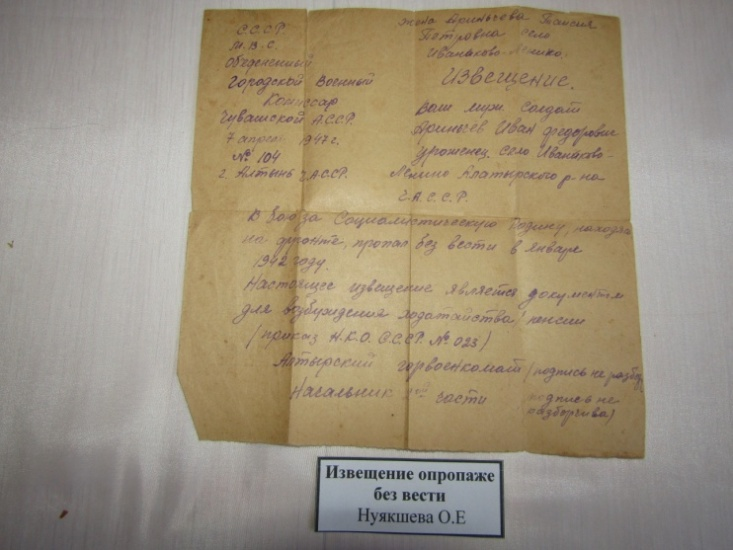 С.С.С.Р.
М.В.С.
Объединенный
Городской Военный
Комиссар
Чувашской А.С.С.Р.
7 апреля 1947 г.
№ 104
г. Алтынь Ч.А.С.С.Р.
жена Таисия
Петровна село
Иваньково-Ленино.
Извещение.
Ваш муж солдат
Иван Федорович
уроженец. село Иваньково-
Ленино Алатырского р-на
Ч.А.С.С.Р.
В за Социалистическую Родину,
на фронте, пропал без вести в январе
1942 году.
Настоящее извещение является документом
для возбуждения ходатайства/ пенсии
/приказ Н.К.О. С.С.С.Р. № 023/
горвоенкомат /подпись не
Начальник части подпись не
разборчива/
Извещение опропаже
без вести
Нуякшева О.Е